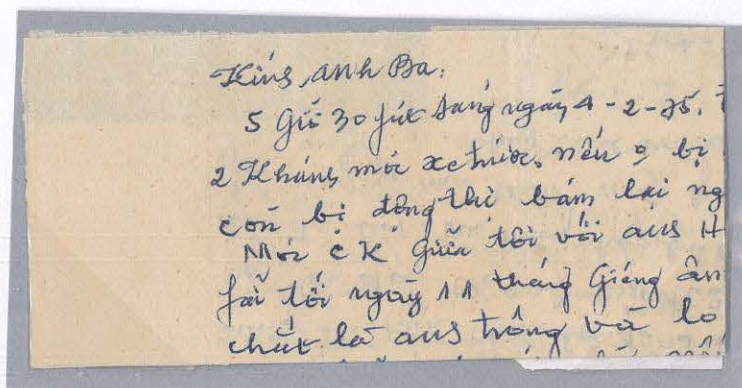 Kính anh Ba:
5 giờ 30 fút sáng ngày 4-2-75.
2 Khánh mới xe trước, nếu o bị
còn bị động thì bám lại ng
Mới CK giữa tôi với anh H
fải tối ngày 11 tháng Giêng âm
chắt là anh trông và lo